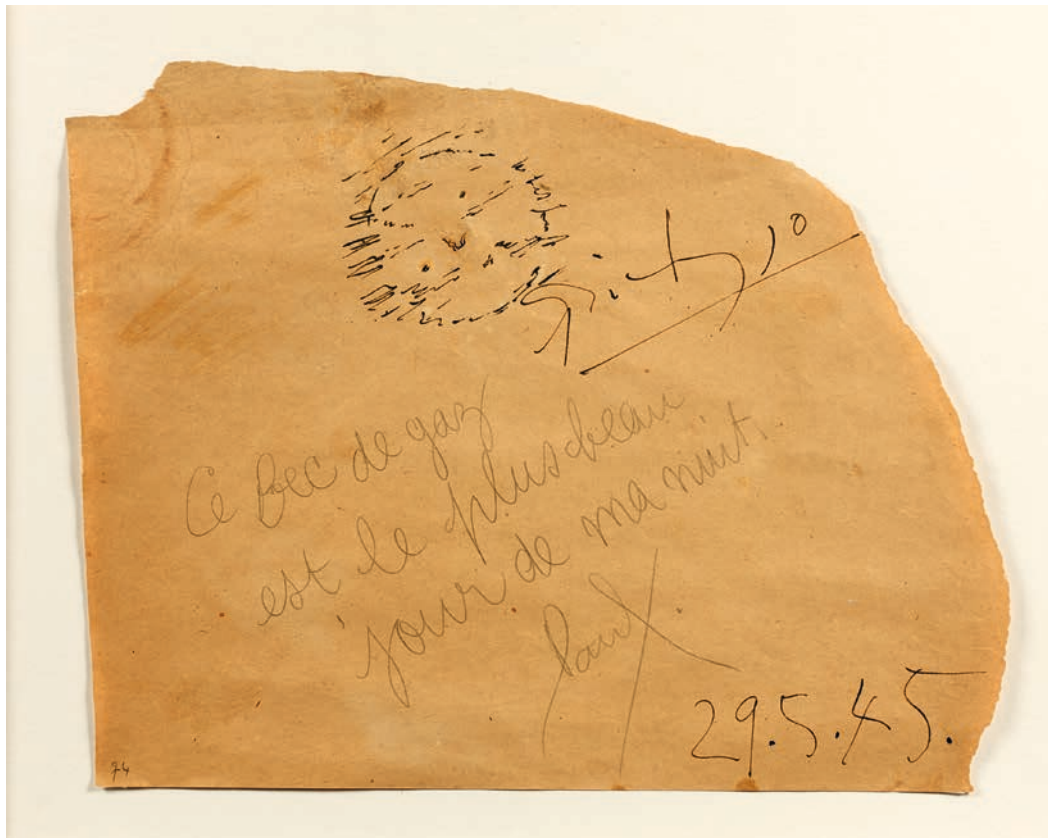 Ce bec de gaz
est le plus beau
jour de ma nuit.
Paul.
29.5.45.
74